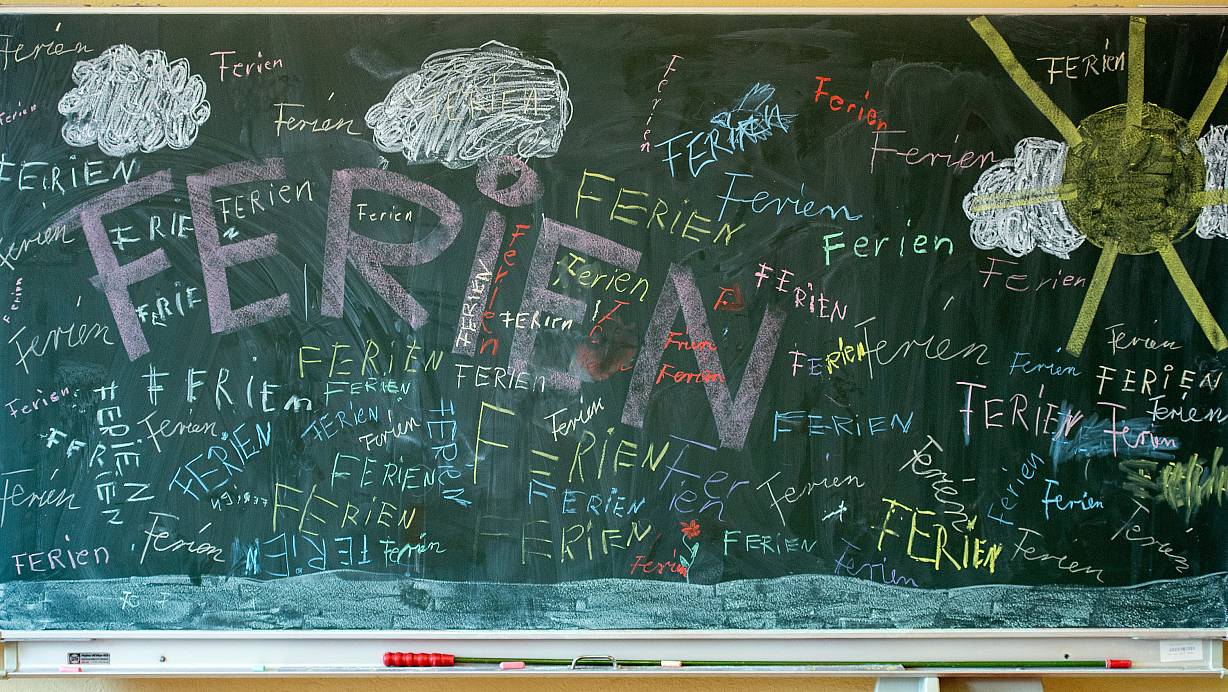 Ferien
Ferien
FERIEN
Ferien
Ferien
Ferien
Ferien
FERIEN
Ferien
FERIEN
Ferien
FERIEN
FERIEN
FERIEN
Ferien
Ferien
FERIEN
Ferien
Ferien
FERIEN
FERIE
Ferien
Ferien
Ferien
Ferien
FERIEN
Ferien
Ferien
FERIE
FERIEN
FERIEN
Ferien
FERIEN
Ferien
Ferien
Ferien
FERIEN
FERIEN
Ferien
Ferien
FERIEN
FERIEN
FERIEN
FERIEN
Ferien
FERIEN
FERIEN
FERIEN
Ferien
FERIEN
Ferien
FERIEN
Ferien
Ferien
FERIEN
Ferien
FERIEN
FERIEN
FERIEN
Fer
ien
Ferien
Ferien
Ferien
Ferien
Ferien
FERIEN
FERIEN
FERIEN
FERIEN
Ferien
Ferien
FERIEN
Ferien
FERIEN
FERIEN
Ferien
Ferien
FERIEN
Ferien